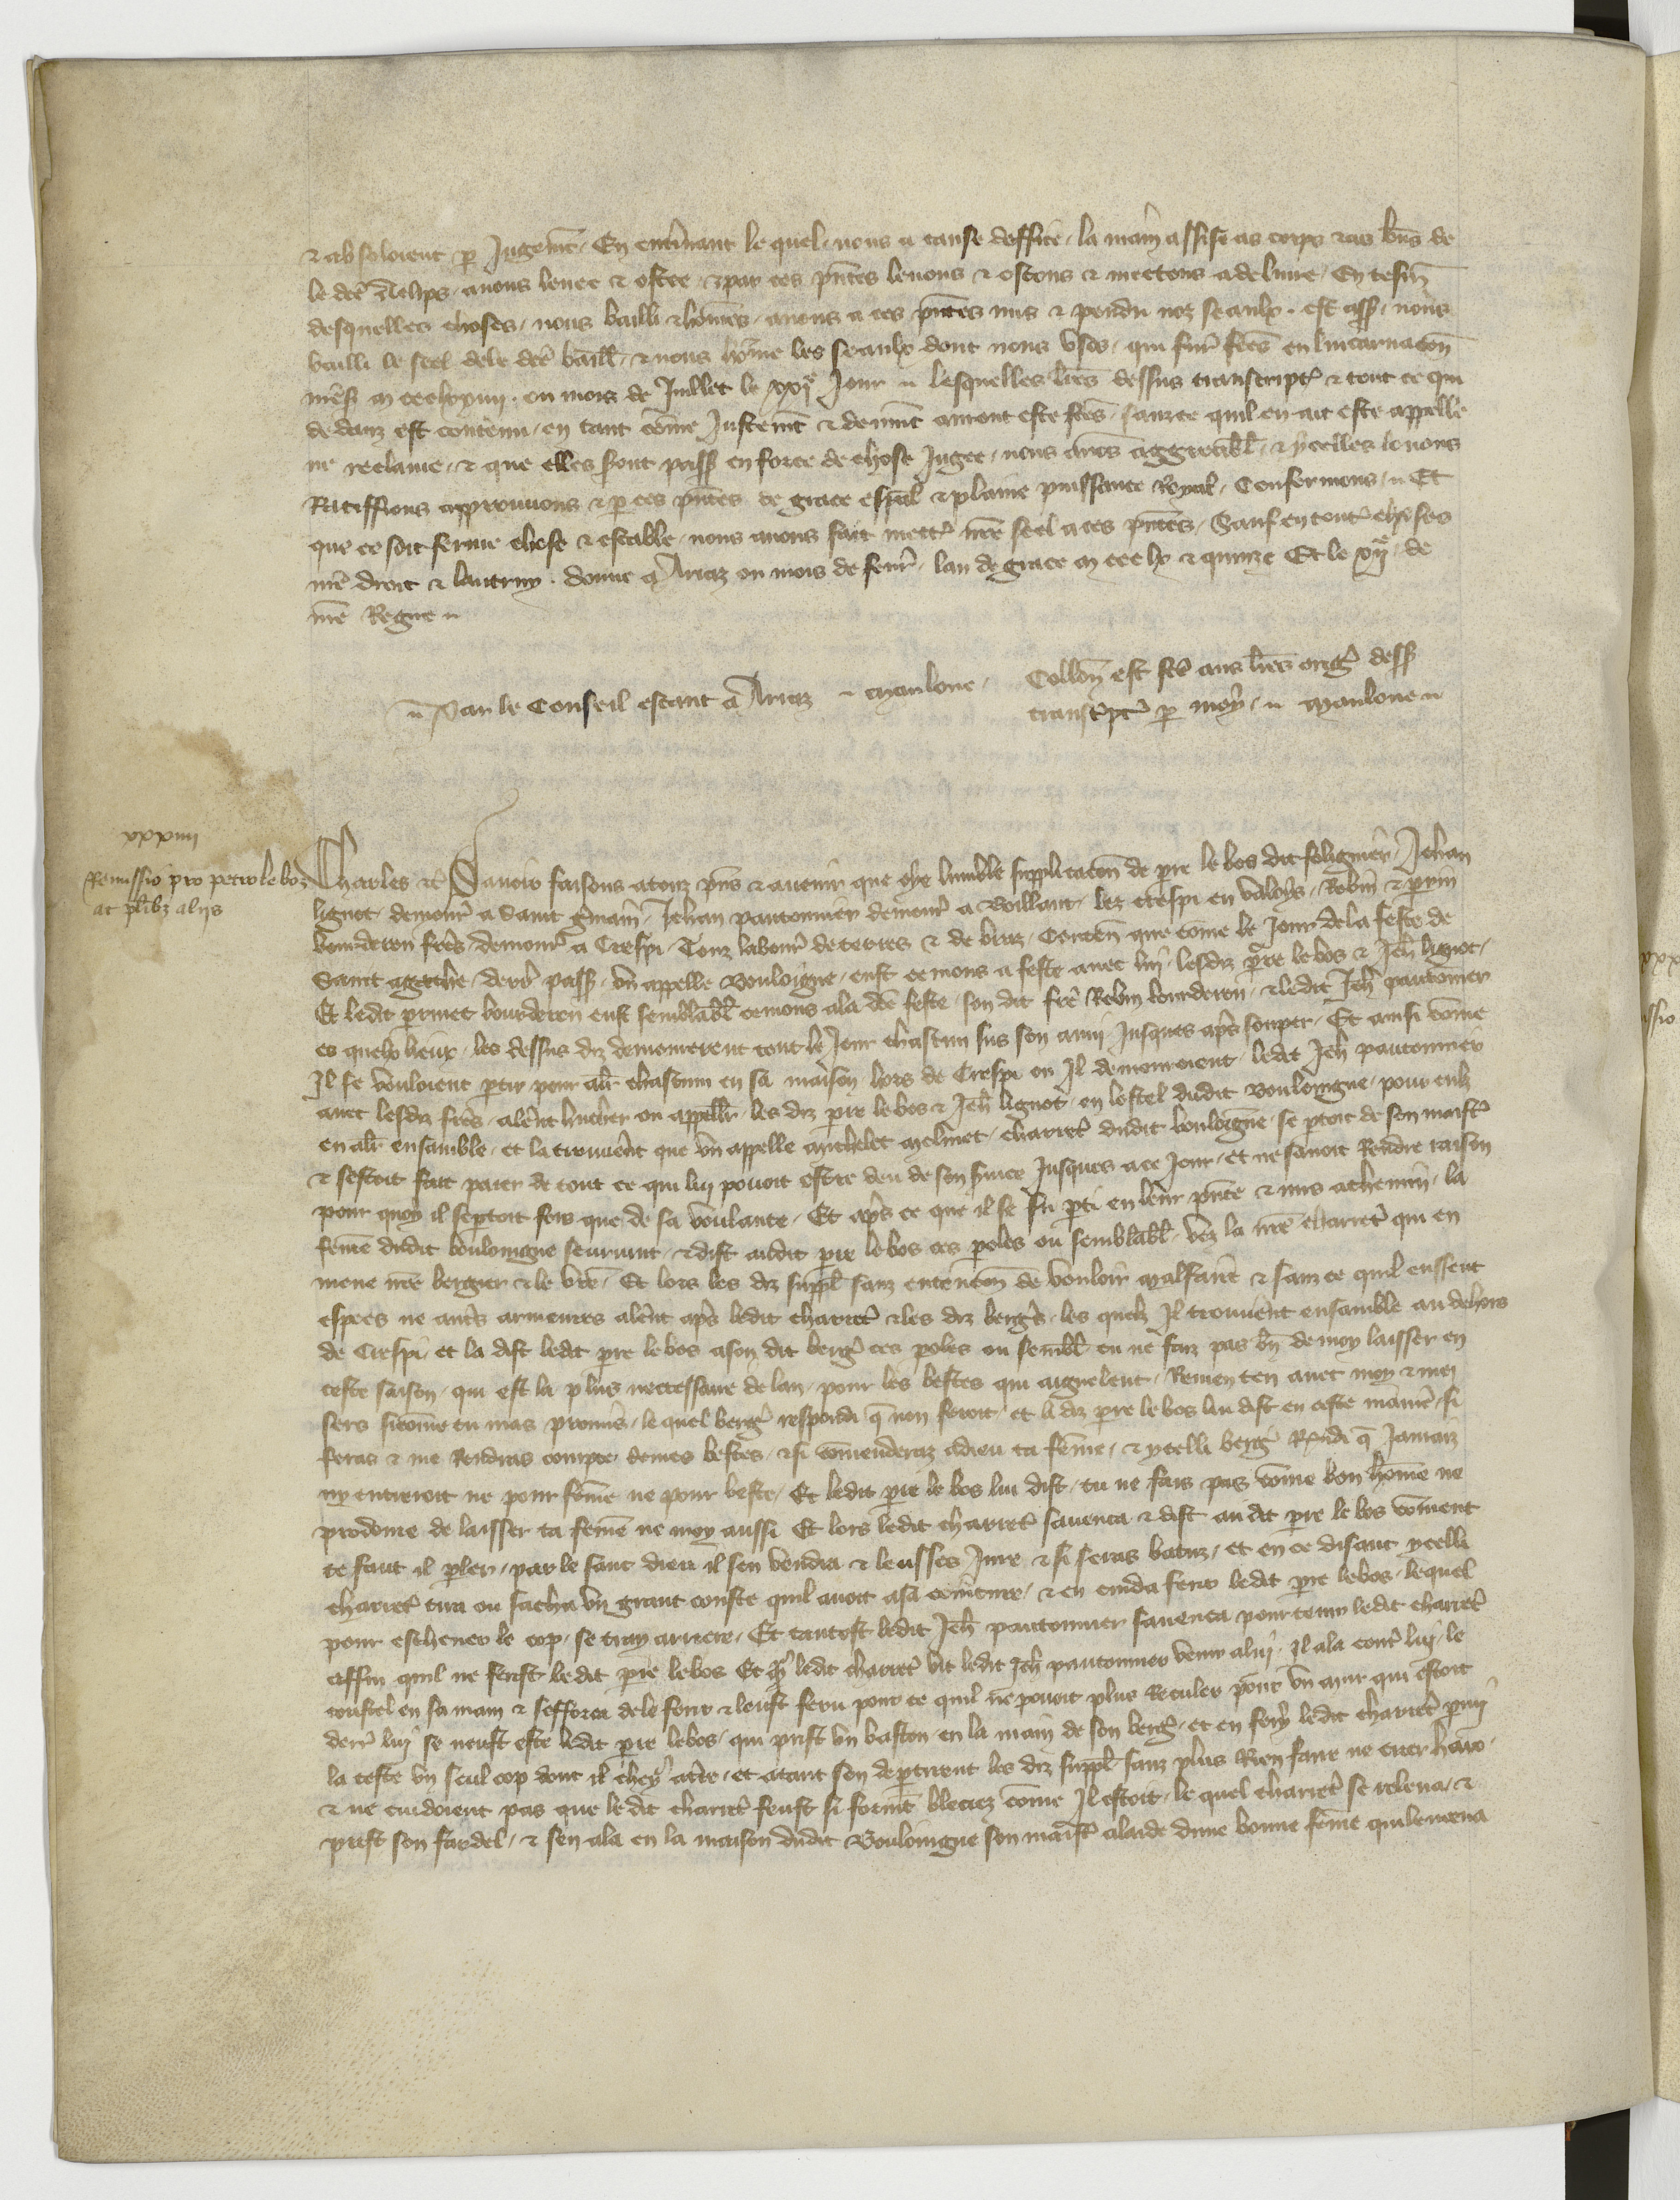 & absoloient p Jugemēt. En enterinant le quel nous a cause doffice la main assise as corps & as biens de
le dcē avons levee & ostee & par ces pntes levons & ostons & mectons a delivre. En tesm
desquelles choses nous bailli & hommes avons a ces pntes mis & pendu noz seaulx. cest ass nous
bailli le seel dele dcē baill & nous homme les seaulx dont nous usos qui fur fces en lincarnacon
mccclxxiiii. ou mois de Juillet le xxiᵉ Jour lesquelles lres dessus transcriptes & tout ce qui
dedanz est contenu en tant cōme Justemt & deuemt auront este fces sanz ce quil en ait este appelle
ne reclame & que elles sont pass en force de chose Jugee nous avōs aggreabl & ycelles louons
Ratiffions approuvons & p ces pntes de grace espal & plaine puissance Royal Confermons Et
que ce soit ferme chose & estable nous avons fait mettr nre seel a ces pntes Sauf en tout choses
nre droit & lautruy. donne a Arraz ou mois de fevr lan de grace m ccc lx & quinze Et le xiiᵉ de
nre Regne
Par le Conseil estant a Arraz Maulone Collon est fcē aus lres orig dess
transcript p moy Maulone
xxxiiii
Remissio pro petro le boz
ac plibz aliis
Charles &c Savoir faisons a touz pns & avenir que oye lumble supplicacon de pre le bos dit soliguier Jehan
liguot demour a Saint gmain Jehan pautonnier demour a Boillant lez crespi en valoys Robin & prin
bourderen freres demour a Crespi Touz labour de terres & de braz Conten que cōme le Jour de la feste de
Saint agathe derr pass un appelle Bouloigne eust semons a feste avec lui lesdiz pre le bos & Jeh liguot
Et ledit prinet bourderen eust semblabl semons ala dcē feste son dit frē Robin bourderen & ledit Jeh pautonier
es quelx lieux les dessus diz demourerent tout le Jour chascun sus son ami Jusques aps souper Et ainsi cōme
Il se vouloient ptir pour alr chascun en sa maison hors de Crespi ou Il demouroient ledit Jeh pautonnier
avec lesdiz frēs alerēt huchier ou appellr les diz pre le bos & Jeh liguot en lostel dudit Bouloingne pour eulz
en alr ensamble et la trouverēt que un appelle Michelet Melinet charret dudit bouloigne se ptoit de son maistr
& sestoit fait paier de tout ce qui lui povoit estre deu de son svice Jusques a ce Jour et ne savoit Rendre raison
pour quoy il septoit fors que de sa voulante Et aps ce que il se fu pti en leur pnce & mis a chemin la
feme dudit bouloingne seurvint & dist audit pre le bos ces poles ou semblabl vez la nre charret qui en
mene nre bergier & le vre Et lors les diz suppl sanz entencon de vouloir malfaire & sanz ce quil eussent
espees ne autrs armeures alerēt aps ledit charret & les diz bergrs les quelz Il trouverēt ensamble au dehors
de Crespi et la dist ledit pre le bos a son dit berg ces poles ou sembl tu ne faiz pas bn de moy laisser en
ceste saison qui est la plus neccessaire de lan pour les bestes qui aignelent Revien ten avec moy & me
sers sicōme tu mas promis le quel berg respondi q non feroit et le diz pre le bos lui dist en ceste maniere si
feras & me Rendras compte de mes bestes & si cōmenderaz adieu ta femme & ycelli berg Rndi q Jamaiz
ny entreroit ne pour fēme ne pour beste Et ledit pre le bos lui dist tu ne fais pas cōme bon hōme ne
prodōme de laisser ta fēme ne moy aussi Et lors ledit charret savenca & dist au dit pre le bos cōment
te faut il pler par le sanc dieu il sen vendra & leusses Jure & si seras batuz et en ce disant ycelli
charret tira ou sacha un grant coustel quil avoit a sa couiture & en cuida ferir ledit pre le bos lequel
pour eschever le cop se tray arriere Et tantost ledit Jeh pautonnier savenca pour tenir ledit charret
affin quil ne ferist ledit pre le bos Et qnt ledit charret vit ledit Jeh pautonnier venir a lui Il ala contr lui le
coustel en sa main & sefforca de le ferir & leust feru pour ce quil ne povoit plus Reculer pour un mur qui estoit
derr lui se neust este ledit pre le bos qui prist un baston en la main de son berg et en fery ledit charret pmi
la teste un seul cop dont il chey a tre et atant sen deptirent les diz suppl sanz plus Rien faire ne crier haro
& ne cuidoient pas que le dit charret feust si formt bleciez cōme Il estoit le quel charret se releva &
prist son fardel & sen ala en la maison dudit Bouloingne son maistr a laide dune bonne fēme qui le mena